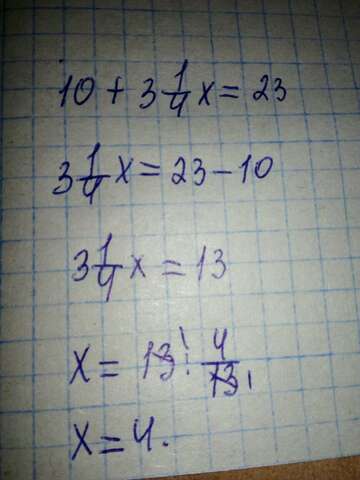 10 + 3 1/4 x = 23
3 1/4 x = 23 - 10
3 1/4 x = 13
x = 13 · 4/13
x = 4.